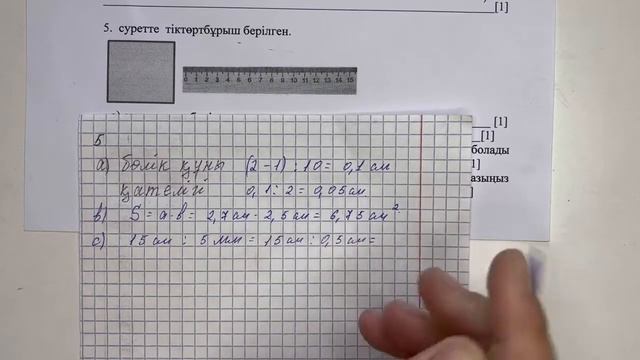 [1]
5. суретте тіктөртбұрыш берілген.
0 1 2 3 4 5 6 7 8 9 10 11 12 13 14 15
[1]
[1]
болады
1]
азыңыз
5
a) бөлік құны (2-1) : 10 = 0,1 см
қателігі 0,1 : 2 = 0,05 см
b) S = a·b = 2,7 см · 2,5 см = 6,75 см²
c) 15 см : 5 мм = 15 см : 0,5 см =